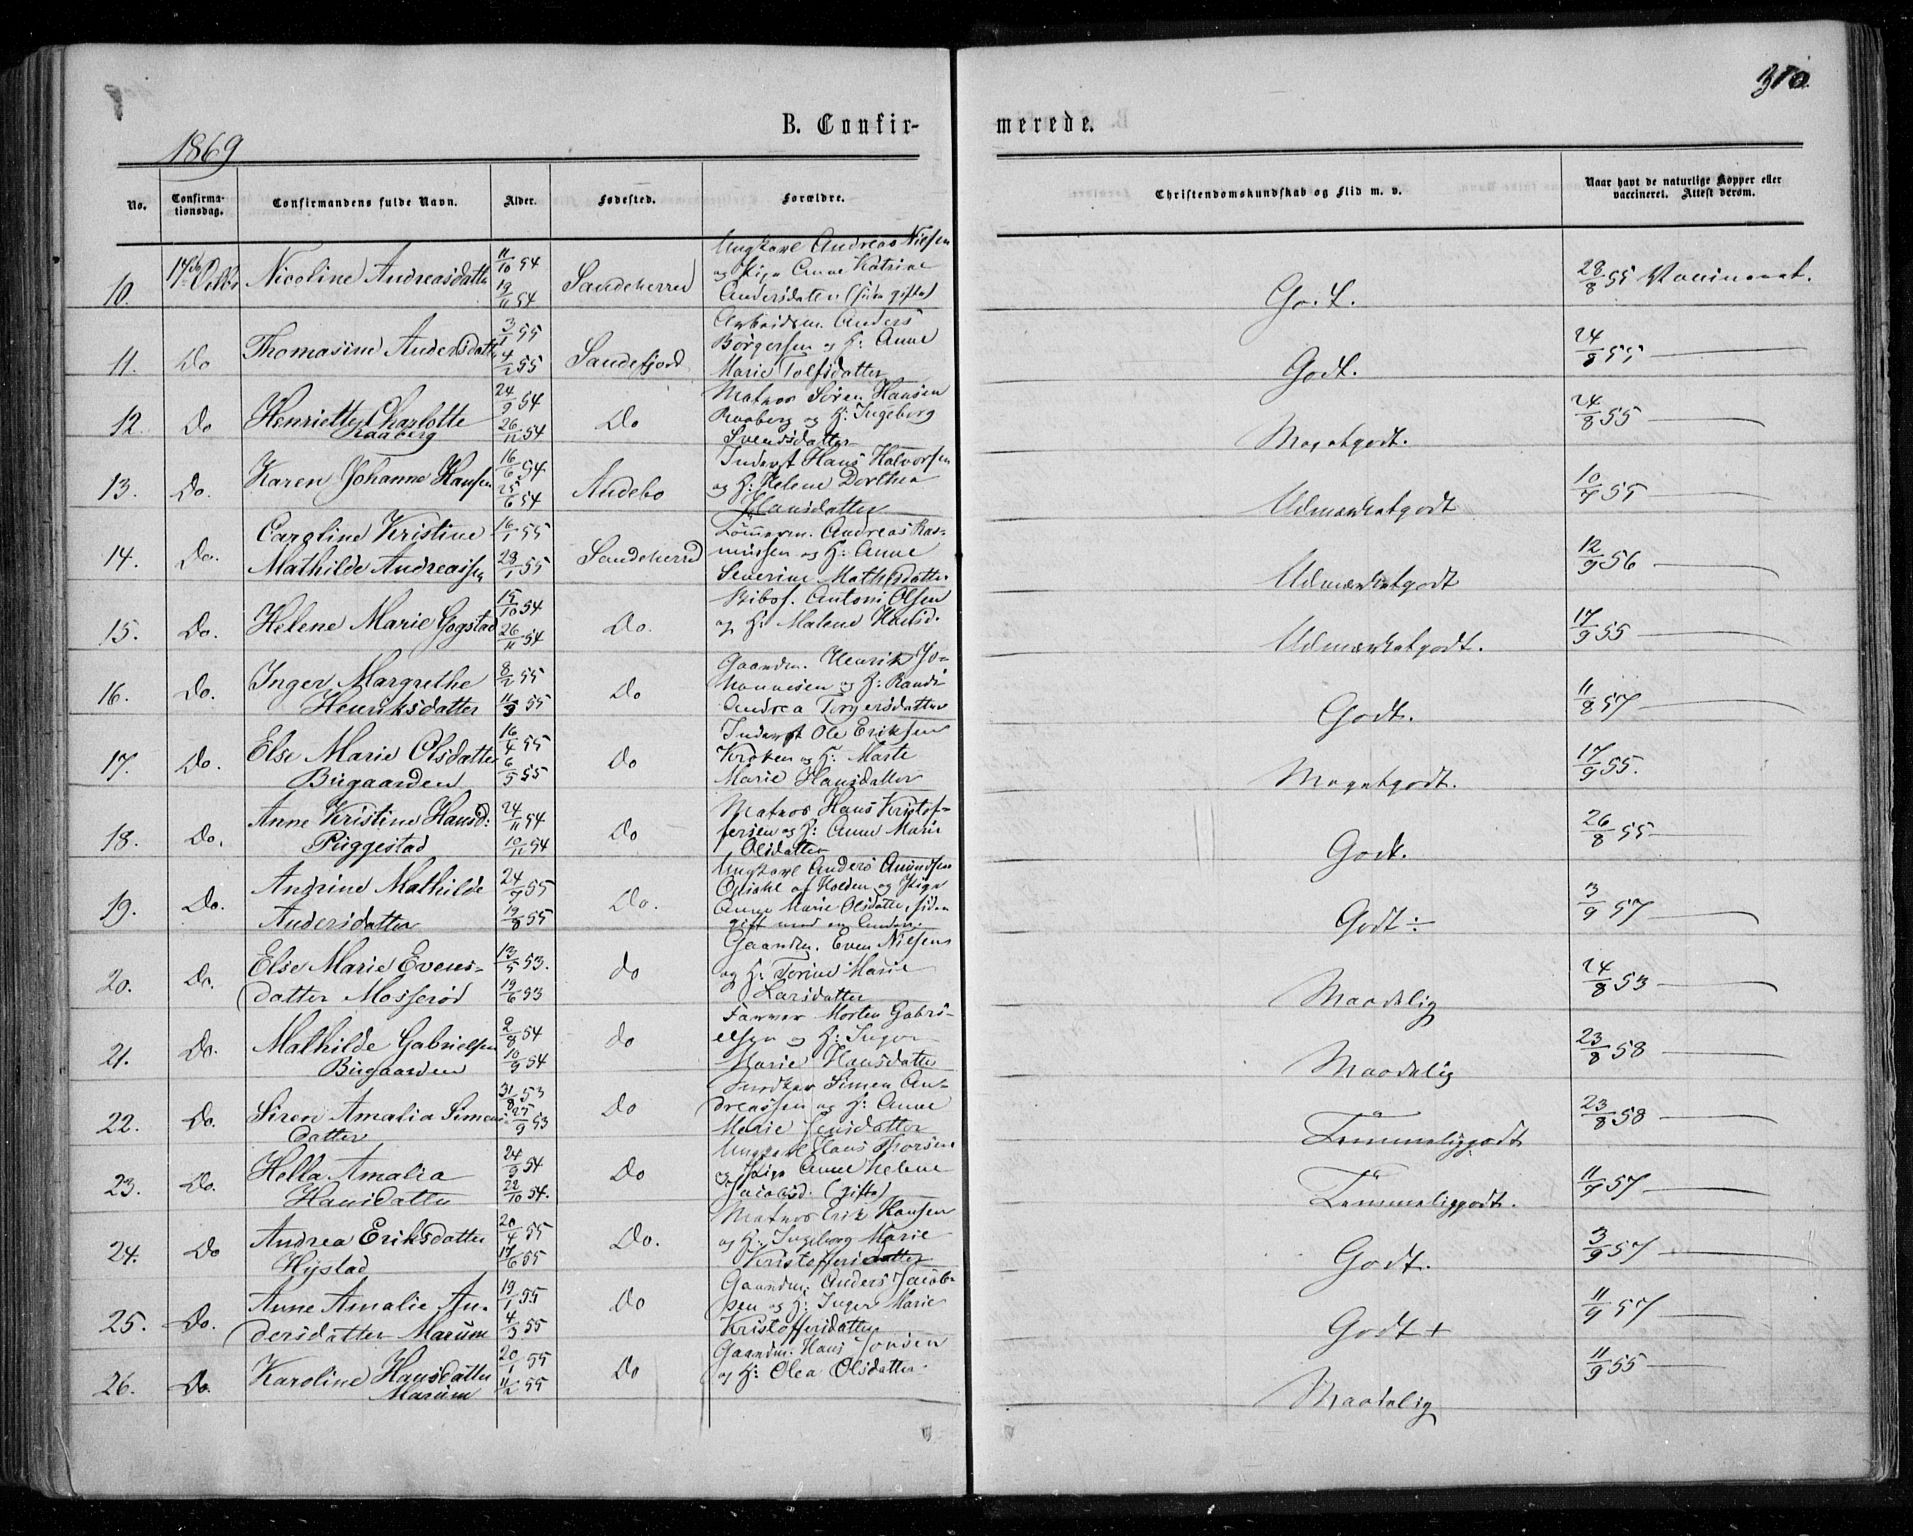 310
B. Confir- merede.
1869
No. Confirma-tionsdag. Confirmandens fulde Navn. Alder. Fødested. Forældre. Christendomskundskab og Flid m. v. Naar havt de naturlige Kopper eller vaccineret. Attest derom.
10. 17de Octbr Nicoline Andreasdatter 11/10 54 19/11 54 Sandeherred Ungkarl Andreas Nielsen
og Pige Anne Katrine
Andersdatter (siden gifte) Godt. 28/8 55 Vaccineret.
11. Do Thomasine Andersdatter 3/1 55 4/2 55 Sandefjord Arbeidsm. Anders
Børgersen og H: Anne
Marie Tolfsdatter Godt. 24/8 55
12. Do Henriette Charlotte
Raaberg 24/9 54 26/12 54 Do Matros Søren Hansen
Raaberg og H: Ingeborg
Svendsdatter Megetgodt. 24/8 55
13. Do. Karen Johanne Hansen 16/6 54 25/6 54 Andebo Inderst Hans Halvorsen
og H: Helene Dorthea
Hansdatter Udmærketgodt 10/7 55
14. Do. Caroline Kristine
Mathilde Andreassen 16/1 55 28/1 55 Sandeherred Tømmerm. Andreas Ras-
mussen og H: Anne
Severine Mathisdatter Udmærketgodt 12/9 56
15. Do. Helene Marie Gogstad 15/10 54 26/11 54 Do. Antoni Olsen
og H: Malene Hansd. Udmærketgodt. 17/9 55
16. Do. Inger Margrethe
Henriksdatter 8/2 55 11/3 55 Do Gaardm. Henrik Jo-
hannesen og H: Randi
Andrea Torgersdatter Godt. 11/8 57
17. Do. Else Marie Olsdatter
Bugaarden 16/4 55 6/5 55 Do Inderst Ole Eriksen
Kroken og H: Marte
Marie Hansdatter Megetgodt. 17/9 55.
18. Do. Anne Kristine Hansd:
Puggestad 24/11 54 10/12 54 Do Matros Hans Kristof-
fersen og H: Anne Marie
Olsdatter Godt. 26/8 55
19. Do. Andrine Mathilde
Andersdatter 24/7 55 19/8 55 Do. Ungkarl Anders Amundsen
af Holden og Pige
Anne Marie Olsdatter, siden
gift med en Anden. Godt ÷ 3/9 57
20. Do. Else Marie Evens-
datter Mosserød 13/5 53. 19/6 53 do Gaardm. Even Nielsen
og H: Torine Marie
Larsdatter Maadelig 24/8 53
21. Do. Mathilde Gabrielsen
Bugaarden 2/8 54 10/9 54 do Morten Gabri-
elsen og H: Inger
Marie Hansdatter Maadelig 23/8 58
22. Do. Siren Amalia Simens-
datter 31/8 53 25/9 53 Do Simen An-
dreassen og H: Anne
Marie Jensdatter Temmeliggodt 23/8 58
23. Do. Hella Amalia
Hansdatter 24/9 54 22/10 54. Do Ungkarl Hans Thorsen
og Pige Anne Helene
Jacobsd. (gifte) Temmeliggodt. 11/9 57
24. Do Andrea Eriksdatter
Hystad 20/4 55 17/6 55 Do. Matros Erik Hansen
og H: Ingeborg Marie
Kristoffersdatter Godt. 3/9 57
25. Do. Anne Amalie An-
dersdatter Marum 19/1 55 4/3 55 Do Gaardm. Anders Jacob-
sen og H: Inger Marie
Kristoffersdatter Godt + 11/9 57
26. Do. Karoline Hansdatter
Marum 20/1 55 11/2 55 Do Gaardm. Hans Jonsen
og H: Olea Olsdatter. Maadelig 11/9 55